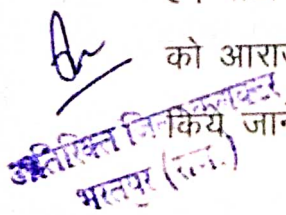 को आराज
किये जान
अतिरिक्त जिला कलक्टर
भरतपुर (राज.)